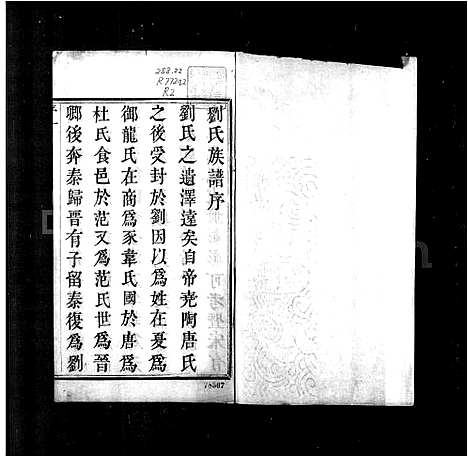 288.22
R77242
R2
劉氏族譜序
劉氏之遺澤遠矣自帝堯陶唐氏
之後受封於劉因以爲姓在夏爲
御龍氏在商爲豕韋氏國於唐爲
杜氏食邑於范又爲范氏世爲晉
卿後奔秦歸晉有子留秦復爲劉
78567